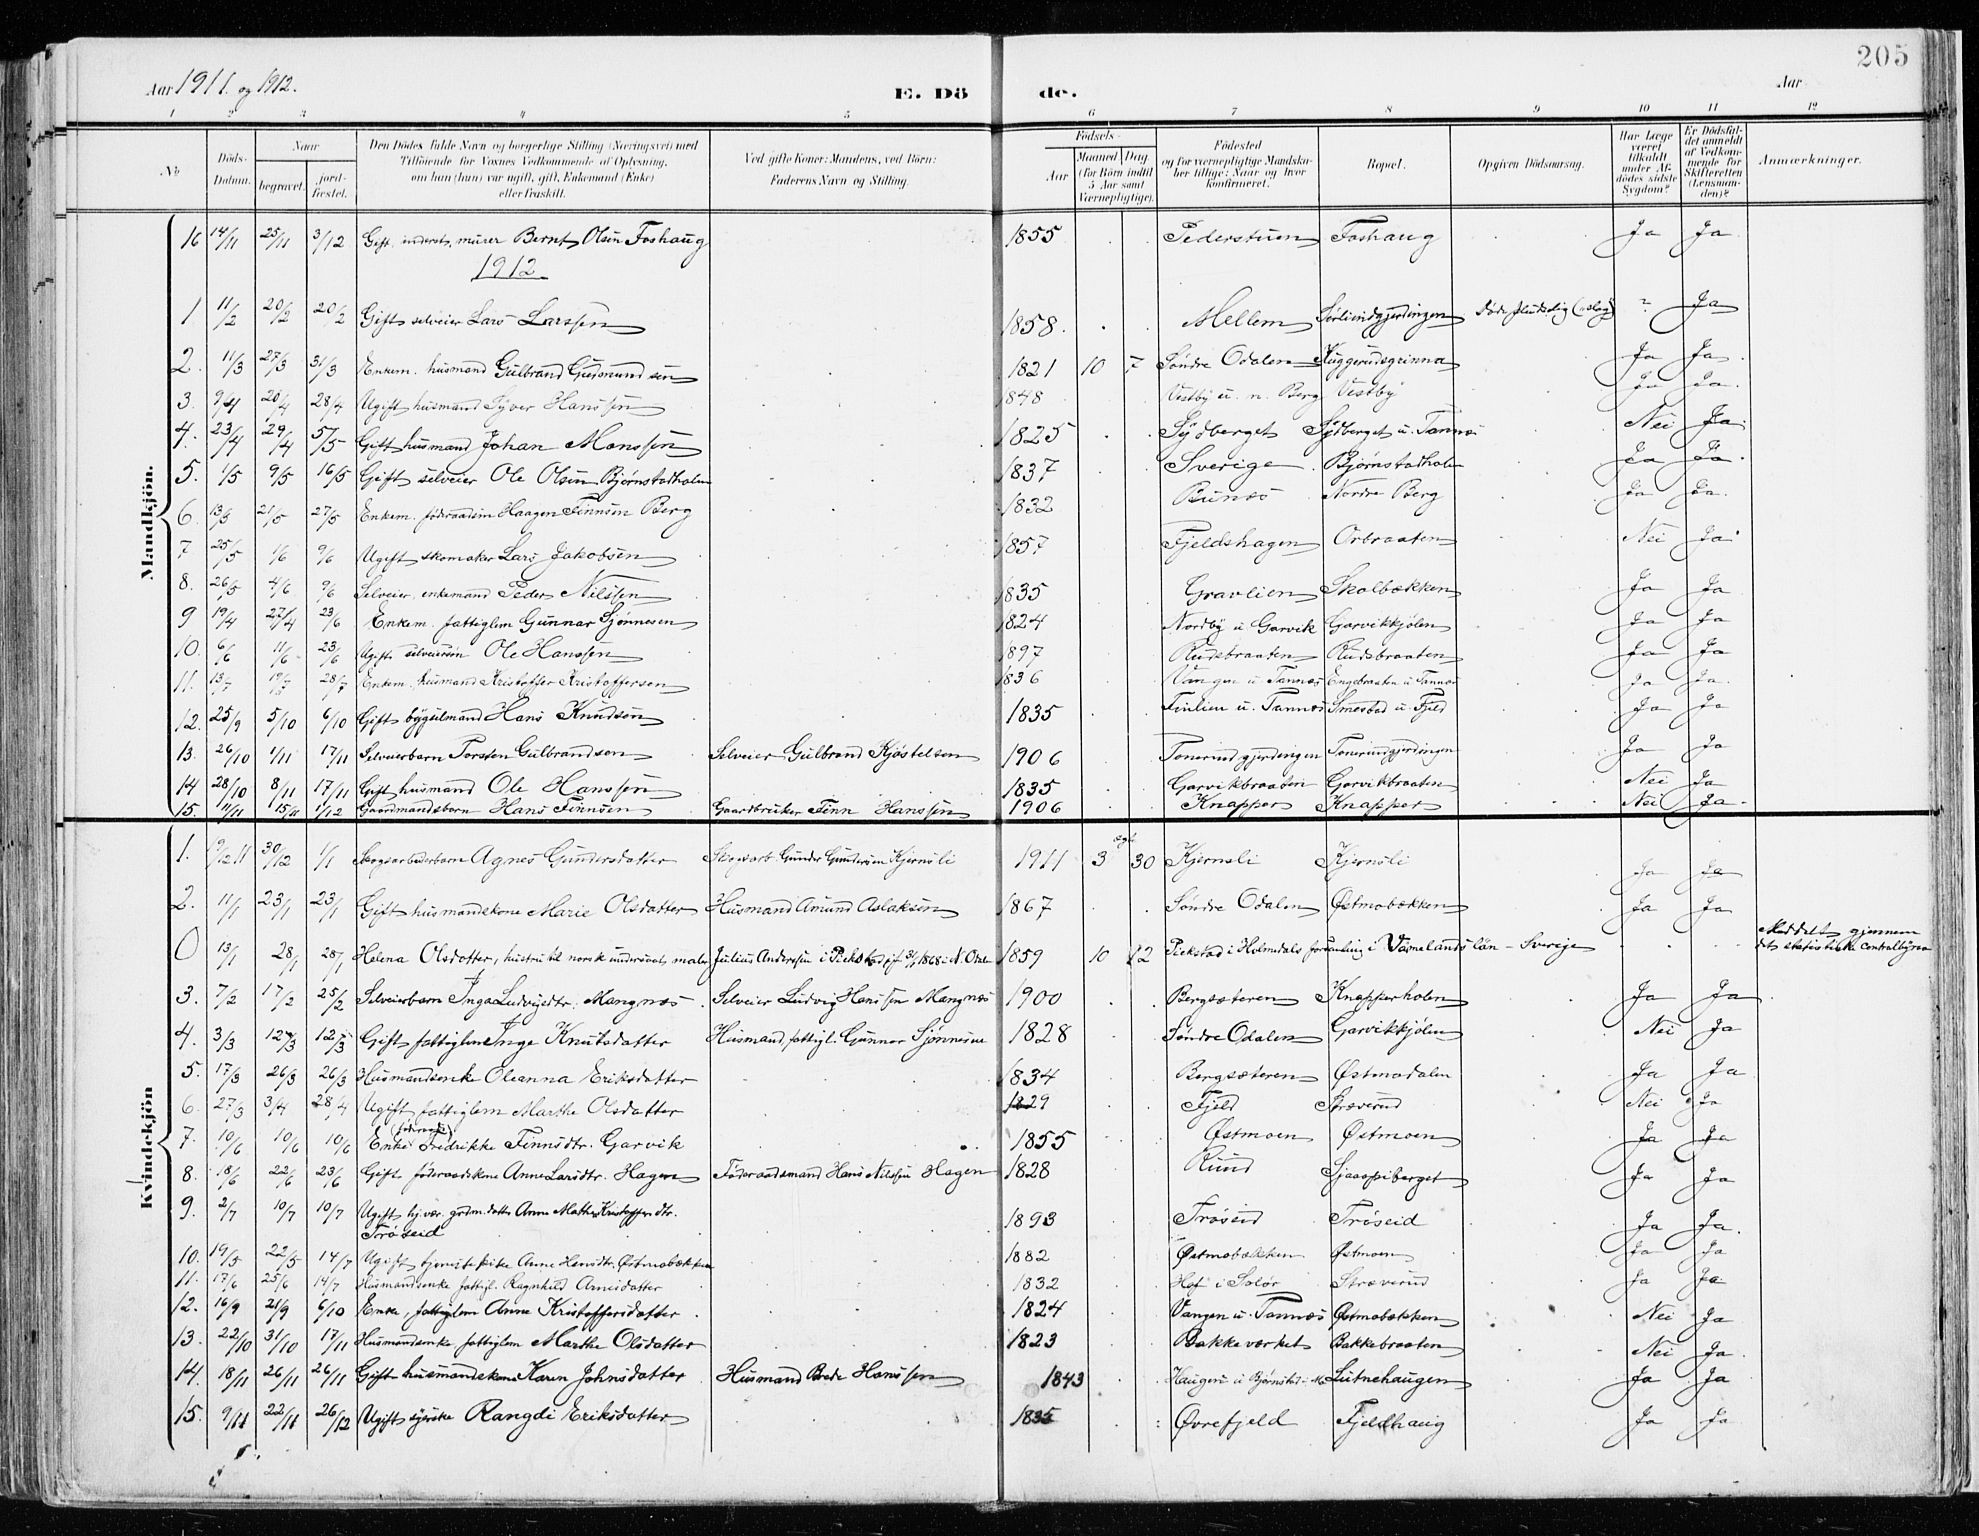 205
Aar 1911. og 1912. E. Dö de. Aar
1 2 3 4 5 6 7 8 9 10 11 12
No
Döds-Datum.
Naar begravet. jordfæstet.
Den Dödes fulde Navn og borgerlige Stilling (Næringsvei) med Tilföiende for Voxnes Vedkommende af Oplysning, om hun (hun) var ugift, gift, Enkemand (Enke) eller fraskilt.
Ved gifte Koner: Mandens, ved Börn: Faderens Navn og Stilling.
Födsels-
Aar
Maaned Dag
(for Börn indtil 5 Aar samt Værnepligtige).
Födested og for værnepligtige Mandskaber tillige: Naar og hvor konfirmeret.
Bopæl.
Opgiven Dödsaarsag.
Har Læge været tilkaldt under Afdödes sidste Sygdom?
Er Dödsfaldet anmeldt af Vedkommende for Skifteretten (Lensmanden)?
Anmærkninger.
Mandkjön.
16 14/11 25/11 3/12 Gift inderst, murer Bernt Olsen Foshaug 1855 Pederstuen Foshaug Ja Ja
1912
1 11/2 20/2 20/2 Gift selveier Lars Larssen 1858 Mellem ? Ja
2. 11/3 27/3 31/3 Enkem. husmand Gulbrand Gudmundsen 1821 10 7 Søndre Odalen Kuggerudsgrinna Ja Ja
3. 9/4 20/4 28/4 Ugift husmand Syver Hanssen 1848 Vestby u. n. Berg Vestby Ja Ja
4. 23/4 29/4 5/5 Gift husmand Johan Monssen 1825 Sydberget Sydberget u. Tannæs Nei Ja
5. 1/5 9/5 16/5 Gift selveier Ole Olsen Bjørnstadholm 1837 Sverige Bjørnstadholm Ja Ja
6. 13/5 21/5 27/5 Enkem. føderaadsm Haagen Finnsen Berg 1832 Bunæs Nordre Berg Ja Ja
7 25/5 1/6 9/6 Ugift skomaker Lars Jakobsen 1857 Fjeldshagen Orbraaten Nei Ja
8. 26/5 4/6 9/6 Selveier, enkemand Peder Nilssen 1835 Gravlien Skolbækken Ja Ja
9 19/4 27/4 23/6 Enkem. fattiglem Gunnar Sjønnesen 1824 Nordby u Garvik Garvikkjølen Ja Ja
10. 6/6 11/6 23/6 Ugift selveiersøn Ole Hanssen 1897 Rudsbraaten Rudsbraaten Ja Ja
11. 13/7 19/7 28/7 Enkem. husmand Kristoffer Kristoffersen 1836 Vangen u Tannæs Engebraaten u Tannæs Ja Ja
12. 25/9 5/10 6/10 Gift bygselmand Hans Knudsen 1835 Finlien u. Tannæs Smestad u. Fjeld Ja Ja
13. 26/10 1/11 17/11 Selveierbarn Torsten Gulbrandsen Selveier Gulbrand Kjøstelsen 1906 Tonerudgjerdingen Tonerudgjerdingen Ja Ja
14 28/10 8/11 17/11 Gift husmand Ole Hanssen 1835 Garvikbraaten Garvikbraaten Nei Ja
15. 11/11 15/11 1/12 Gaardmandsbarn Hans Finnsen Gaardbruker Finn Hanssen 1906 Knapper Knapper Nei Ja
Kvindekjön
1. 9/12 11 30/12 1/1 Skogsarbeiderbarn Agnes Gundersdatter Skogsarb Gunder Gundersen Kjernsli 1911 3 30 Kjernsli Kjernsli Ja Ja
2. 11/1 23/1 23/1 Gift husmandskone Marie Olsdatter Husmand Amund Aslaksen 1867 Søndre Odalen Østmobækken Ja Ja
0 13/1 28/1 28/1 Helena Olsdotter, hustru til norsk undersaat, maler Julius Anderssen i 1859 10 12 i Holmedals forsamling i Värmelands län - Sverige Meddelt gjennem det statistiske centralbyraa
3. 7/2 17/2 25/2 Selveierbarn Inga Ludvigsdtr. Mangnæs Selveier Ludvig Hanssen Mangnæs 1900 Bergsæteren Knapperholen Ja Ja
4. 3/3 12/3 12/3 Gift fattiglem Inge Knutsdatter Husmand, fattigl. Gunnar Sjønnesen 1828 Søndre Odalen Garvikkjølen Nei Ja
5. 17/3 26/3 26/3 Husmandsenke Oleanna Eriksdatter 1834 Bergsæteren Østmodalen Ja Ja
6. 27/3 3/4 28/4 Ugift fattiglem Marthe Olsdatter 1829 Fjeld Stræverud Nei Ja
7. 10/6 10/6 10/6 Enke Fredrikke Finnsdtr. Garvik 1855 Østmoen Østmoen Ja Ja
8. 18/6 22/6 23/6 Gift føderaadskone Anne Larsdtr. Hagen Føderaadsmand Hans Nilssen Hagen 1828 Rund Sjaapiberget Ja Ja
9. 2/7 10/7 10/7 Ugift hjvær. gdm. datter Anne Mathea Kristoffersdtr. Trøseid 1893 Trøseid Trøseid Ja Ja
10. 19/5 22/5 14/7 Ugift tjenestepike Anne Hansdtr. Østmobækken 1882 Østmobækken Østmoen Ja Ja
11. 17/6 25/6 14/7 Husmandsenke fattigl. Ragnhild Arnesdatter 1832 Hof i Solør Stræverud Ja Ja
12. 16/9 21/9 6/10 Enke, fattiglem Anne Kristoffersdatter 1824 Vangen u. Tannæs Østmobækken Nei Ja
13. 22/10 31/10 17/11 Husmandsenke fattiglem Marthe Olsdatter 1823 Bakkeværket Bakkebraaten Nei Ja
14. 18/11 26/11 26/11 Gift husmandskone Karen Johnsdatter Husmand Brede Hanssen 1843 Haugen u Bjørnstad Lutnehaugen Ja Ja
15. 9/11 22/11 26/12 Ugift syerske Rangdi Eriksdatter 1835 Øvrefjeld Fjeldhaug Ja Ja